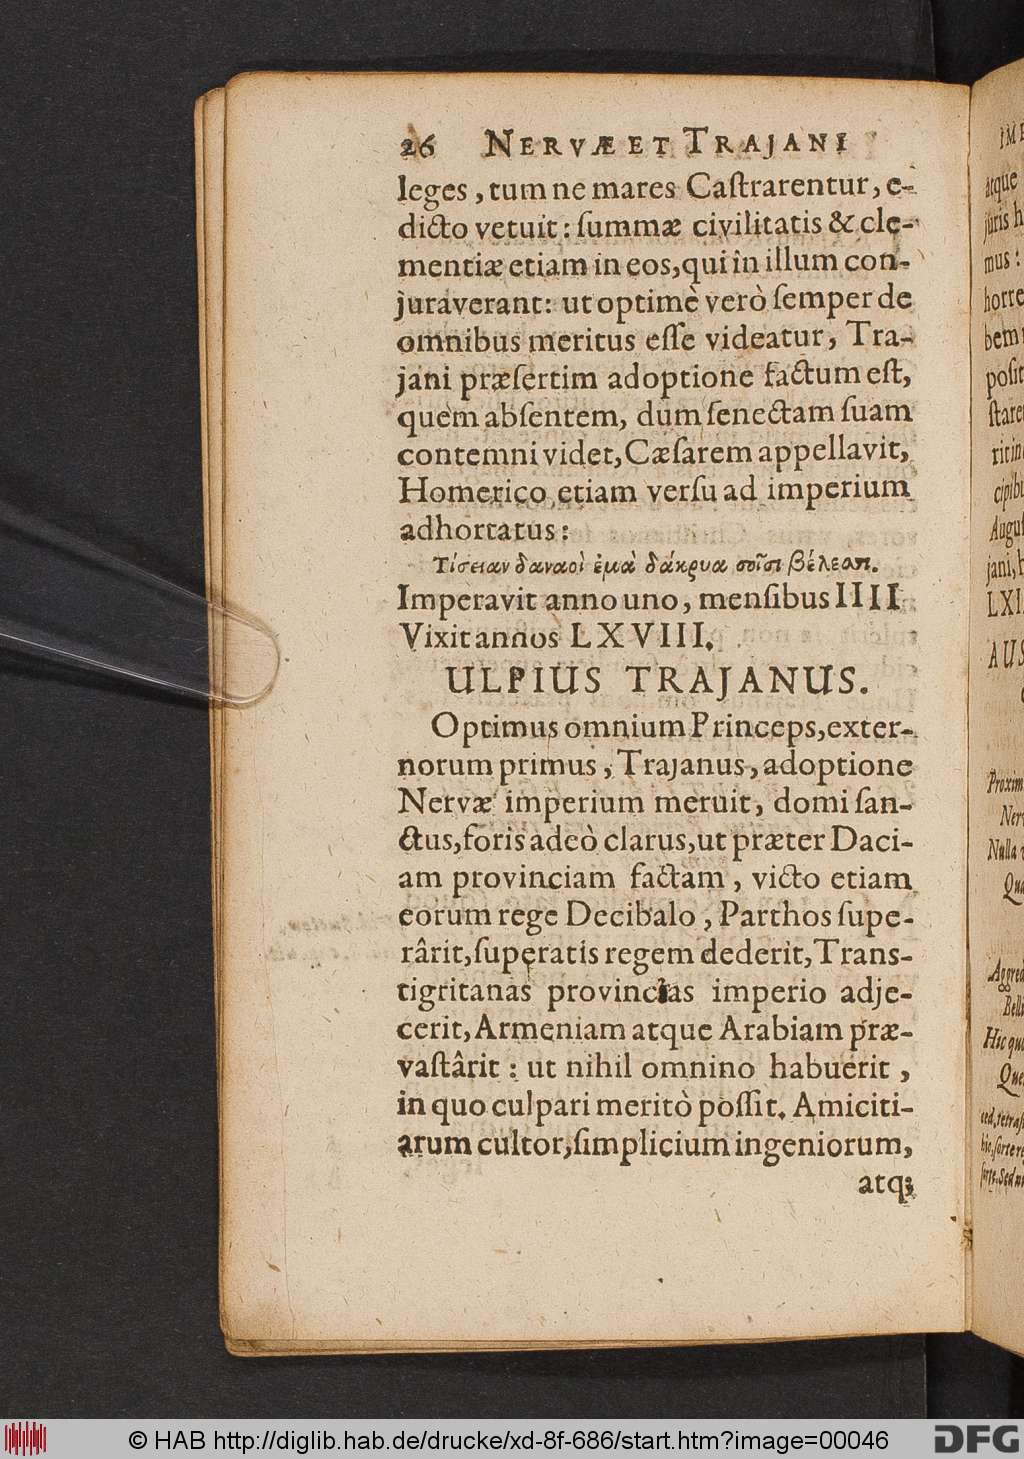 26 NERVÆ ET TRAJANI
leges, tum ne mares Castrarentur, e-
dicto vetuit: summæ civilitatis & cle-
mentiæ etiam in eos, qui in illum con-
juraverant: ut optimè verò semper de
omnibus meritus esse videatur, Tra-
jani præsertim adoptione factum est,
quem absentem, dum senectam suam
contemni videt, Cæsarem appellavit,
Homerico etiam versu ad imperium
adhortatus:
Τίσειαν δαναοὶ ἐμὰ δάκρυα σοῖσι βέλεσσι.
Imperavit anno uno, mensibus IIII
Vixit annos LXVIII.
ULPIUS TRAJANUS.
Optimus omnium Princeps, exter-
norum primus, Trajanus, adoptione
Nervæ imperium meruit, domi san-
ctus, foris adeò clarus, ut præter Daci-
am provinciam factam, victo etiam
eorum rege Decibalo, Parthos supe-
rârit, superatis regem dederit, Trans-
tigritanas provincias imperio adje-
cerit, Armeniam atque Arabiam præ-
vastârit: ut nihil omnino habuerit,
in quo culpari meritò possit. Amiciti-
arum cultor, simplicium ingeniorum,
atq;
atque
juris h
mus:
horre
bem
posit
stare
ritin
cipibu
Augus
jani, h
LXI
AUS
Proxim
Ner
Nulla
Qua
Aggred
Belli
Hic qu
Que
© HAB http://diglib.hab.de/drucke/xd-8f-686/start.htm?image=00046
DFG